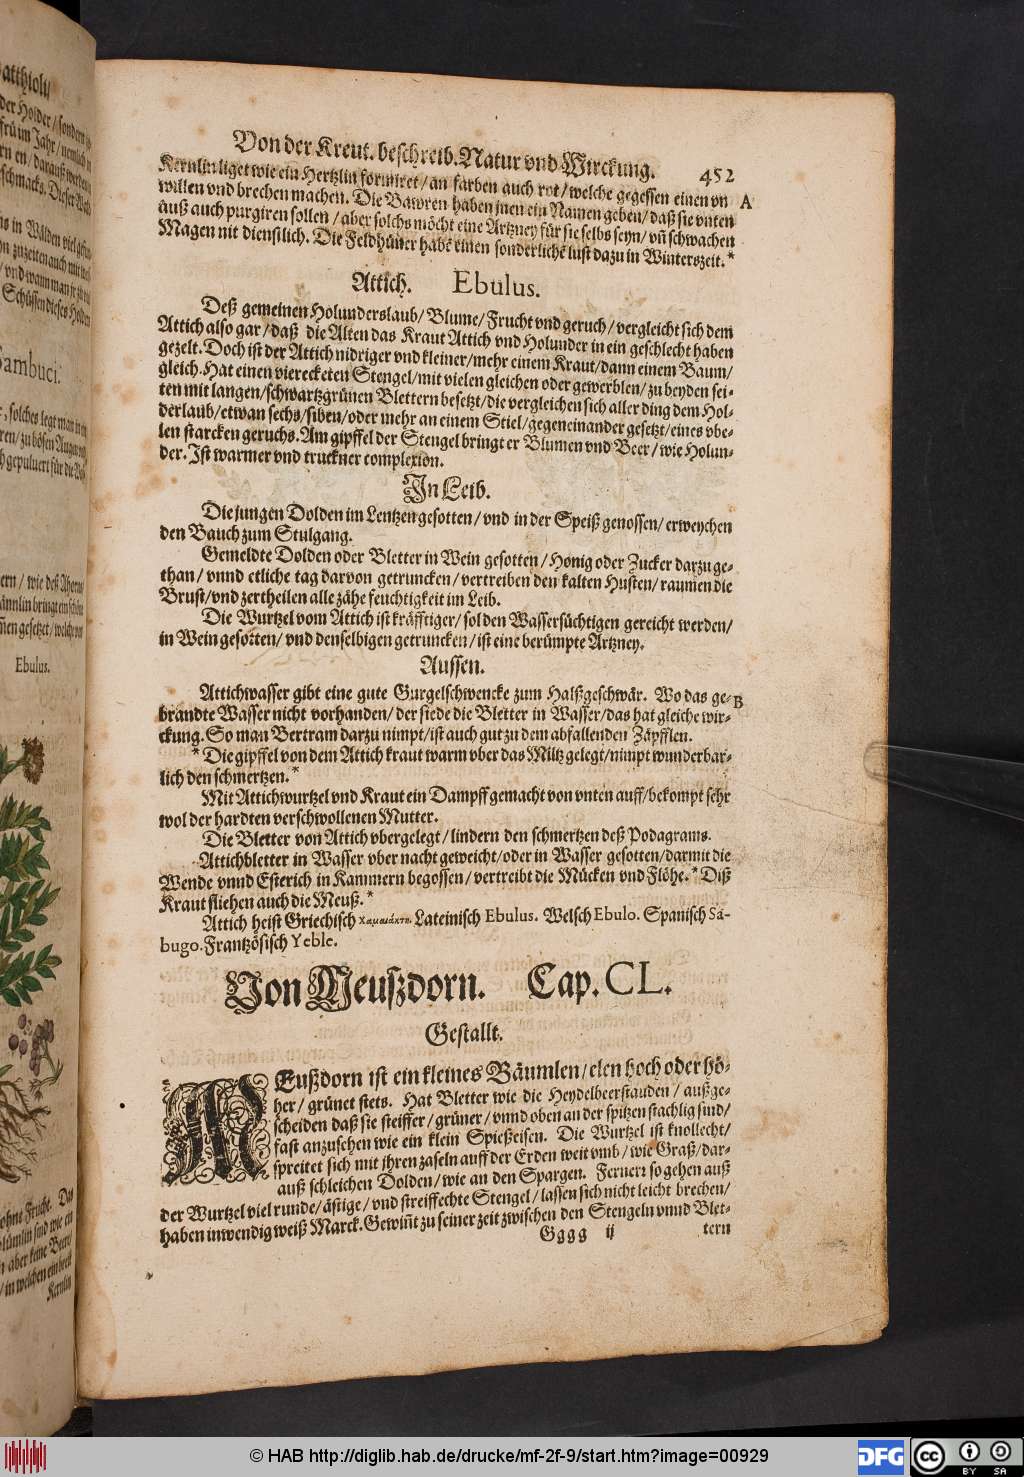 Von der Kreut. beschreib. Natur vnd Wirckung. 452
Kernlin liget wie ein Hertzlin formiret/ an farben auch rot/ welche gegessen einen vn A
willen vnd brechen machen. Die Bawren haben jnen ein Namen geben/ daß sie vnten
auß auch purgiren sollen/ aber solchs möcht eine Artzney für sie selbs seyn/ vñ schwachen
Magen nit dienstlich. Die Feldhüner habẽ einen sonderlichẽ lust dazu in Winterszeit.*
Attich. Ebulus.
Deß gemeinen Holunderslaub/ Blume/ Frucht vnd geruch/ vergleicht sich dem
Attich also gar/ daß die Alten das Kraut Attich vnd Holunder in ein geschlecht haben
gezelt. Doch ist der Attich nidriger vnd kleiner/ mehr einem Kraut/ dann einem Baum/
gleich. Hat einen viereckten Stengel/ mit vielen gleichen oder gewerblen/ zu beyden sei-
ten mit langen/ schwartzgrünen Blettern besetzt/ die vergleichen sich aller ding dem Hol-
derlaub/ etwan sechs/ siben/ oder mehr an einem Stiel/ gegeneinander gesetzt/ eines vbe-
len starcken geruchs. Am gipffel der Stengel bringt er Blumen vnd Beer/ wie Holun-
der. Ist warmer vnd truckner complexion.
In Leib.
Die jungen Dolden im Lentzen gesotten/ vnd in der Speiß genossen/ erweychen
den Bauch zum Stulgang.
Gemeldte Dolden oder Bletter in Wein gesotten/ Honig oder Zucker darzu ge-
than/ vnnd etliche tag darvon getruncken/ vertreiben den kalten Husten/ raumen die
Brust/ vnd zertheilen alle zähe feuchtigkeit im Leib.
Die Wurtzel vom Attich ist kräfftiger/ sol den Wassersüchtigen gereicht werden/
in Wein gesotten/ vnd denselbigen getruncken/ ist eine berümpte Artzney.
Aussen.
Attichwasser gibt eine gute Gurgelschwencke zum Halßgeschwär. Wo das ge- B
brandte Wasser nicht vorhanden/ der siede die Bletter in Wasser/ das hat gleiche wir-
ckung. So man Bertram darzu nimpt/ ist auch gut zu dem abfallenden Zäpfflen.
* Die gipffel von dem Attich kraut warm vber das Miltz gelegt/ nimpt wunderbar-
lich den schmertzen.*
Mit Attichwurtzel vnd Kraut ein Dampff gemacht von vnten auff/ bekompt sehr
wol der hardten verschwollenen Mutter.
Die Bletter von Attich vbergelegt/ lindern den schmertzen deß Podagrams.
Attichbletter in Wasser vber nacht geweicht/ oder in Wasser gesotten/ darmit die
Wende vnnd Esterich in Kammern begossen/ vertreibt die Mücken vnd Flöhe.* Diß
Kraut fliehen auch die Meuß.*
Attich heist Griechisch χαμαιάκτη. Lateinisch Ebulus. Welsch Ebulo. Spanisch Sa-
bugo. Frantzösisch Yeble.
Von Meußdorn. Cap. CL.
Gestallt.
MEußdorn ist ein kleines Bäumlen/ elen hoch oder hö-
her/ grünet stets. Hat Bletter wie die Heydelbeerstauden/ außge-
scheiden daß sie steiffer/ grüner/ vnnd oben an der spitzen stachlig sind/
fast anzusehen wie ein klein Spießeisen. Die Wurtzel ist knollecht/
spreitet sich mit jhren zaseln auff der Erden weit vmb/ wie Graß/ dar-
auß schleichen Dolden/ wie an den Spargen. Ferners so gehen auß
der Wurtzel viel runde/ ästige/ vnd streiffechte Stengel/ lassen sich nicht leicht brechen/
haben inwendig weiß Marck. Gewiñt zu seiner zeit zwischen den Stengeln vnnd Blet-
Gggg ij tern
atthioli/
der Holder/ sondern
frü im Jahr/ nemlich
darauß werden
schmacks. Dieser
in Wälden viel
zuzeiten auch mit
vnd wann man
Schüssen dieses Holders
Sambuci.
solches legt man in
zu bösen Augen
gepuluert für die
wie deß Ahorns
männlin bringt ein schöne
gesetzet/ welche vor
Ebulus.
ohne Frucht. Das
blümlin sind wie ein
aber keine Beer/
in welchen ein breit
Kernlin
© HAB http://diglib.hab.de/drucke/mf-2f-9/start.htm?image=00929
DFG
cc
BY SA